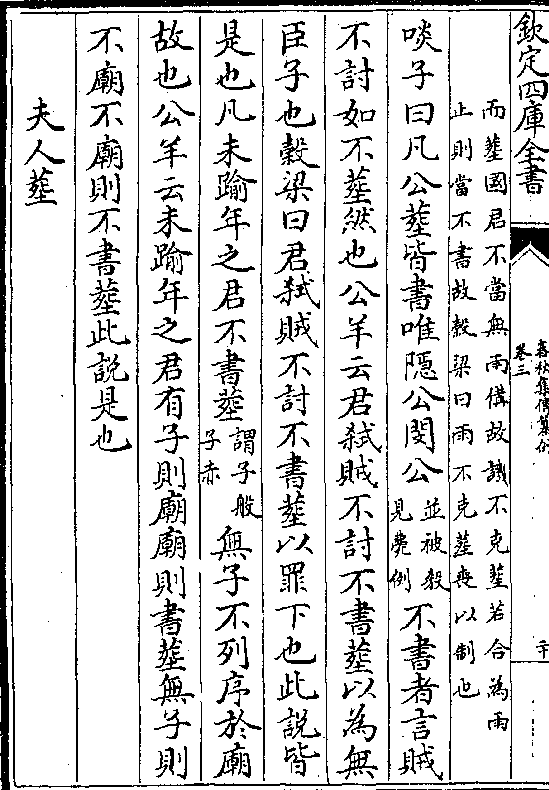 欽定四庫全書
春秋集傳纂例
卷三
而葬國君不當無雨備故譏不克葬若合為雨
止則當不書故穀梁曰雨不克葬喪以制也
啖子曰凡公葬皆書唯隱公閔公並被殺見薨例不書者言賊
不討如不葬然也公羊云君弑賊不討不書葬以為無
臣子也穀梁曰君弑賊不討不書葬以罪下也此説皆
是也凡未踰年之君不書葬謂子般子赤無子不列序於廟
故也公羊云未踰年之君有子則廟廟則書葬無子則
不廟不廟則不書葬此説是也
夫人葬